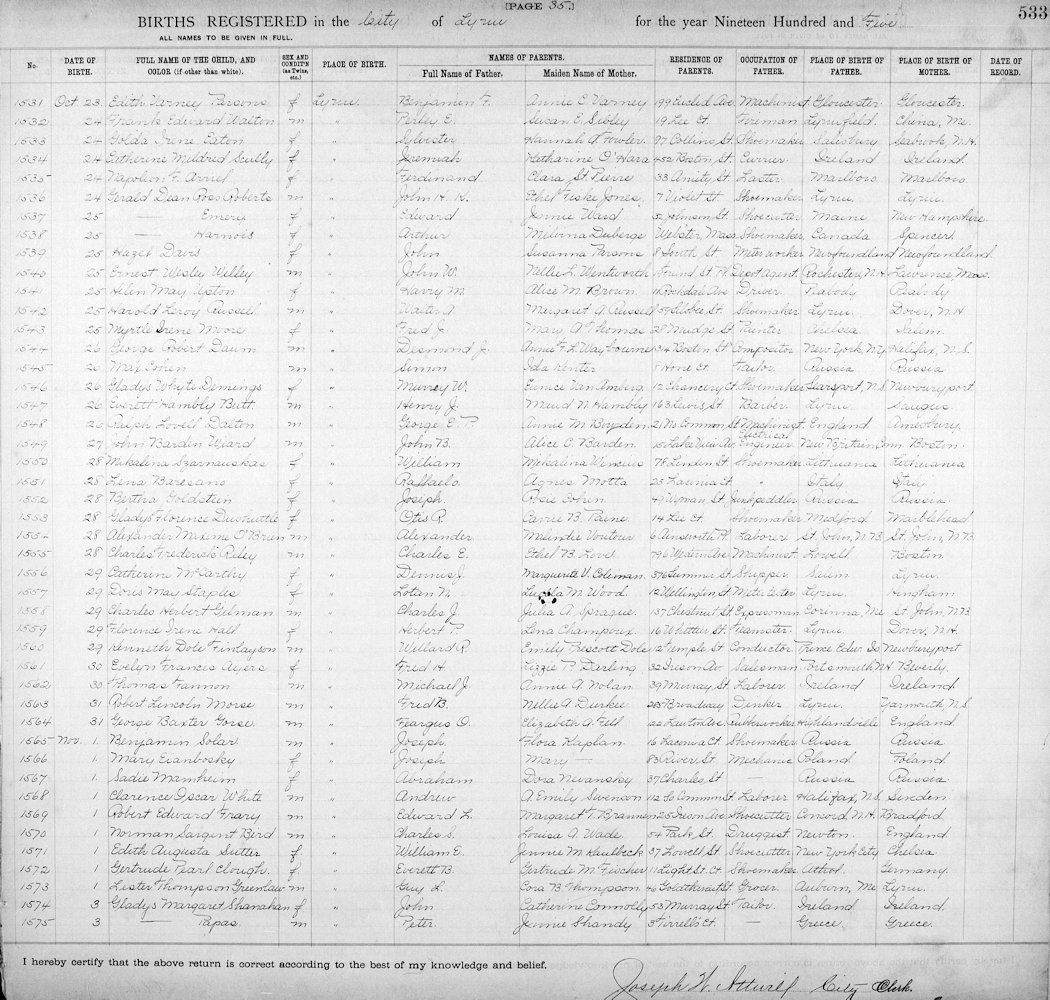 [PAGE 35.]
533
BIRTHS REGISTERED in the City of Lynn for the year Nineteen Hundred and Five
ALL NAMES TO BE GIVEN IN FULL.
No. DATE OF BIRTH. FULL NAME OF THE CHILD, AND COLOR (if other than white). SEX AND CONDIT'N (as Twins, etc.) PLACE OF BIRTH. NAMES OF PARENTS. Full Name of Father. Maiden Name of Mother. RESIDENCE OF PARENTS. OCCUPATION OF FATHER. PLACE OF BIRTH OF FATHER. PLACE OF BIRTH OF MOTHER. DATE OF RECORD.
1531 Oct 23 Edith Varney Parsons f Lynn Benjamin F. Annie E. Varney 199 Euclid Ave Machinist Gloucester Gloucester
1532 24 Frank Edward Walton m " Perley E. Susan E. Sibley 19 Lee Ct. Fireman Lynnfield China, Me.
1533 24 Golda Irene Eaton f " Sylvester Hannah A. Fowler 97 Collins St Shoemaker Salisbury Seabrook, N.H.
1534 24 Catherine Mildred Scully f " Jeremiah Katharine O'Hara 452 Boston St. Currier Ireland Ireland
1535 24 Napoleon F. f " Ferdinand Clara St Pierre 33 Amity St. Laster Marlboro Marlboro
1536 24 Gerald Dean Ross Roberts m " John H. Ethel Fiske Jones 7 Violet St. Shoemaker Lynn Lynn
1537 25 — Emery f " Edward Jennie Ward 5 Johnson St. Shoecutter Maine New Hampshire
1538 25 — Harnois f " Arthur Melvina Webster, Mass. Shoemaker Canada Spencer
1539 25 Hazel Davis f " John Susanna Parsons 8 South St. Newfoundland Newfoundland
1540 25 Ernest Wesley Willey m " John W. Nellie L. Wentworth Depot Agent Rochester, N.H. Lawrence, Mass.
1541 25 Helen May Upton f " Harry M. Alice M. Brown 11 Rockdale Ave Driver Peabody Peabody
1542 25 Harold Leroy Russell m " Walter A. Margaret A. Russell Shoemaker Lynn Dover, N.H.
1543 25 Myrtle Irene Moore f " Fred J. Mary A. Thomas 28 Mudge St. Painter Chelsea Salem
1544 26 George Robert Daum m " Desmond J. Annie F. L. Waybourne 314 Boston St. Compositor New York, N.Y. Halifax, N.S.
1545 26 Max Cohen m " Simon Ida 8 Ct. Tailor Russia Russia
1546 26 Gladys Whyte Demings f " Murrey W. Eunice Van Amberg 12 Chancery Ct. Shoemaker Newburyport
1547 26 Everett Hambly Butt m " Henry J. Maud N. Hambly 163 Lewis St. Barber Lynn Saugus
1548 26 Ralph Lovell Dalton m " George E. P. Annie M. Boyden 21 No Common St Machinist England Amesbury
1549 27 John Barden Ward m " John B. Alice C. Barden 15 Lake View Av. Electrical Engineer New Britain, Conn. Boston
1550 28 Mikalina Szarnauskas f " William Mikalina 78 Linden St. Shoemaker Lithuania Lithuania
1551 28 Lena Baresano f " Raffaelo Agnes Motta 25 Laconia Ct. " Italy Italy
1552 28 Bertha Goldstein f " Joseph Rosie Cohen 49 Wyman St. Junkpeddler Russia Russia
1553 28 Gladys Florence Dushuttle f " Otis R. Carrie B. Paine 14 Lee Ct. Shoemaker Medford Marblehead
1554 28 Alexander Maxime O'Brien m " Alexander Melendie Voutour 6 Ainsworth Pl Laborer St. John, N.B. St. John, N.B.
1555 28 Charles Frederick Riley m " Charles E. Ethel B. Love 796 Western Ave Machinist Lowell Boston
1556 29 Catherine McCarthy f " Dennis J. Marguerite V. Coleman 376 Summer St. Shipper Salem Lynn
1557 29 Doris May Staples f " Lotan M. M. Wood 12 Wellington St. Lynn Hingham
1558 29 Charles Herbert Gilman m " Charles J. Julia A. Sprague 137 Chestnut St Expressman Corinna, Me St. John, N.B.
1559 29 Florence Irene Hall f " Herbert P. Lena Champoux 16 Whittier St. Teamster Lynn Dover, N.H.
1560 29 Kenneth Dole Finlayson m " Willard R. Emily Prescott Dole 12 Temple St. Conductor Prince Edw. Is Newburyport
1561 30 Evelyn Francis Ayers f " Fred H. Lizzie P. Darling 32 Ireson Av. Salesman Portsmouth N.H. Beverly
1562 30 Thomas Fannon m " Michael J. Annie A. Nolan 39 Murray St Laborer Ireland Ireland
1563 31 Robert Lincoln Morse m " Fred B. Nellie A. Durkee Broadway Dinker Lynn Yarmouth, N.S.
1564 31 George Baxter Gorse m " Feargus O. Elizabeth A. Fell 22 Lawton Ave Rubberworker Highlandville England
1565 Nov. 1 Benjamin Solar m " Joseph Flora Kaplan 16 Laconia Ct. Shoemaker Russia Russia
1566 1 Mary Evanbosky f " Joseph Mary — 83 River St. Mechanic Poland Poland
1567 1 Sadie Mamheim f " Abraham Dora Nevansky 37 Charles St — Russia Russia
1568 1 Clarence Oscar White m " Andrew A. Emily Swenson 112 So Common St Laborer Halifax, N.S. Sweden
1569 1 Robert Edward Frary m " Edward L. Margaret T. Brannen 25 Ireson Ave Shoecutter Concord, N.H. Bradford
1570 1 Norman Sargent Bird m " Charles S. Louisa A. Wade 54 Park St. Druggist Newton England
1571 1 Edith Augusta Sutter f " William E. Jennie M. Kaulbeck 37 Lowell St Shoecutter New York City Chelsea
1572 1 Gertrude Pearl Clough f " Everett B. Gertrude M. Fischer 11 Light St. Ct. Shoemaker Athol Germany
1573 1 Lester Thompson Greenlaw m " Guy L. Cora B. Thompson 46 Goldthwait St Grocer Auburn, Me Lynn
1574 3 Gladys Margaret Shanahan f " John Catherine Connolly 53 Murray St Tailor Ireland Ireland
1575 3 — Papas m " Peter Jennie Shandy 3 Tirrell's Ct. — Greece Greece
I hereby certify that the above return is correct according to the best of my knowledge and belief.
Joseph W. Attwill City Clerk.